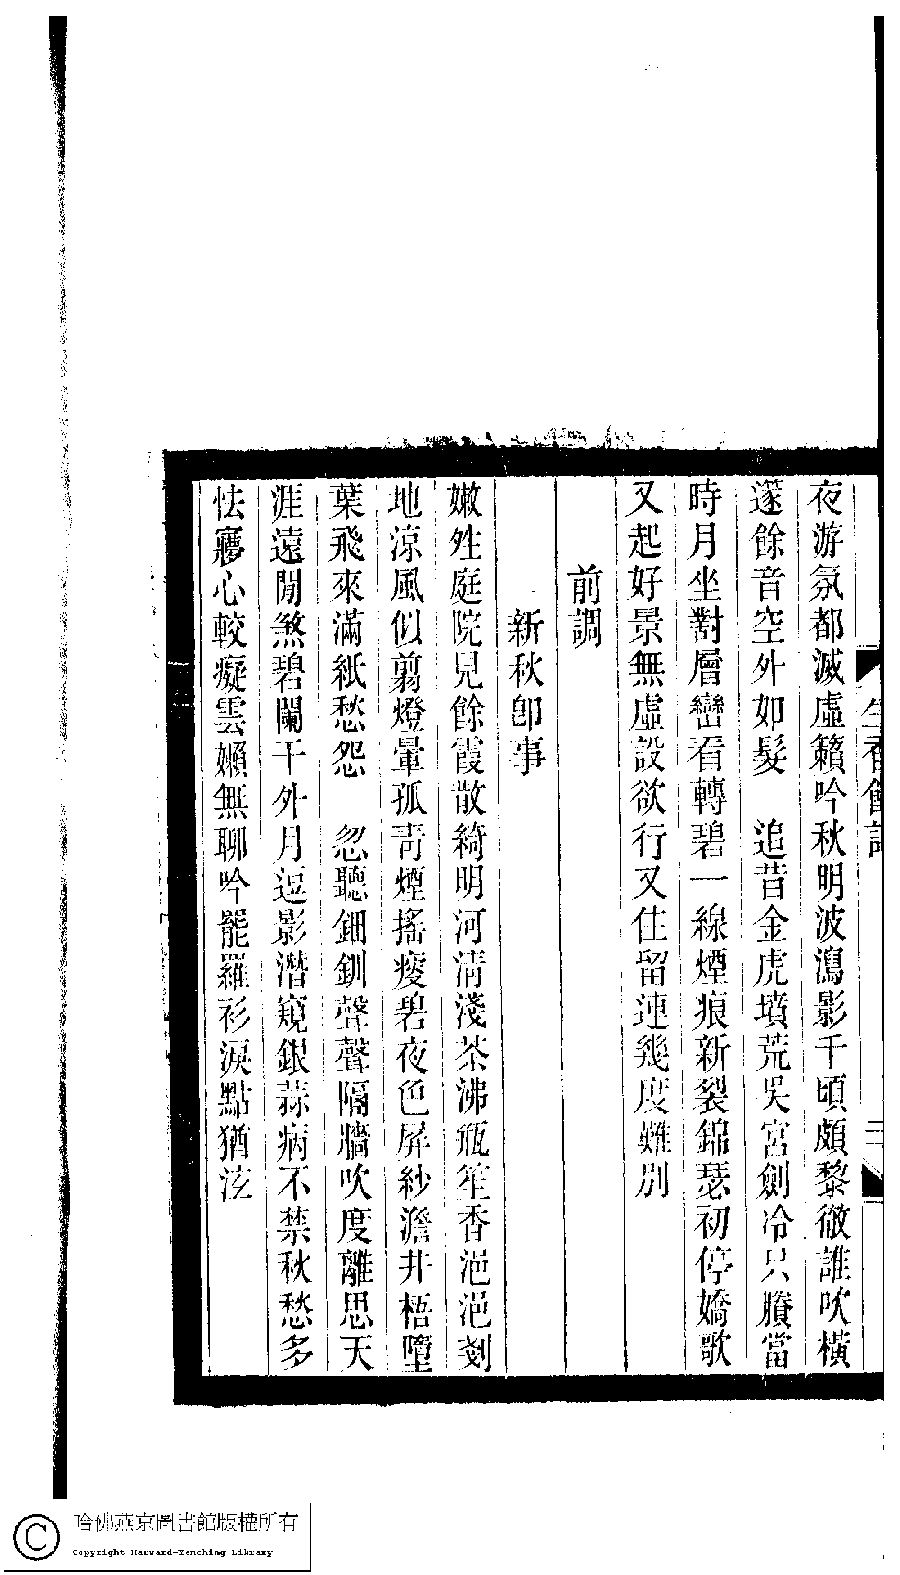 夜游氛都滅虛籟吟秋明波瀉影千頃頗黎徹誰吹橫
邃餘音空外如髮　追昔金虎墳荒吳宮劍冷只賸當
時月坐對層巒看轉碧一線煙痕新裂錦瑟初停嬌歌
又起好景無虛設欲行又住留連幾度難別
前調
新秋卽事
嫩姓庭院見餘霞散綺明河淸淺茶沸瓶笙香浥浥剗
地涼風似翦燈暈孤靑煙搖瘦碧夜色屏紗澹井梧墮
葉飛來滿紙愁怨　忽聽鈿釧聲聲隔牆吹度離思天
涯遠閒煞碧闌干外月逗影潛窺銀蒜病不禁秋愁多
怯寢心較癡雲嬾無聊吟罷羅衫淚點猶泫
生香館詞
二
哈佛燕京圖書館版權所有
Copyright Harvard-Yenching Library